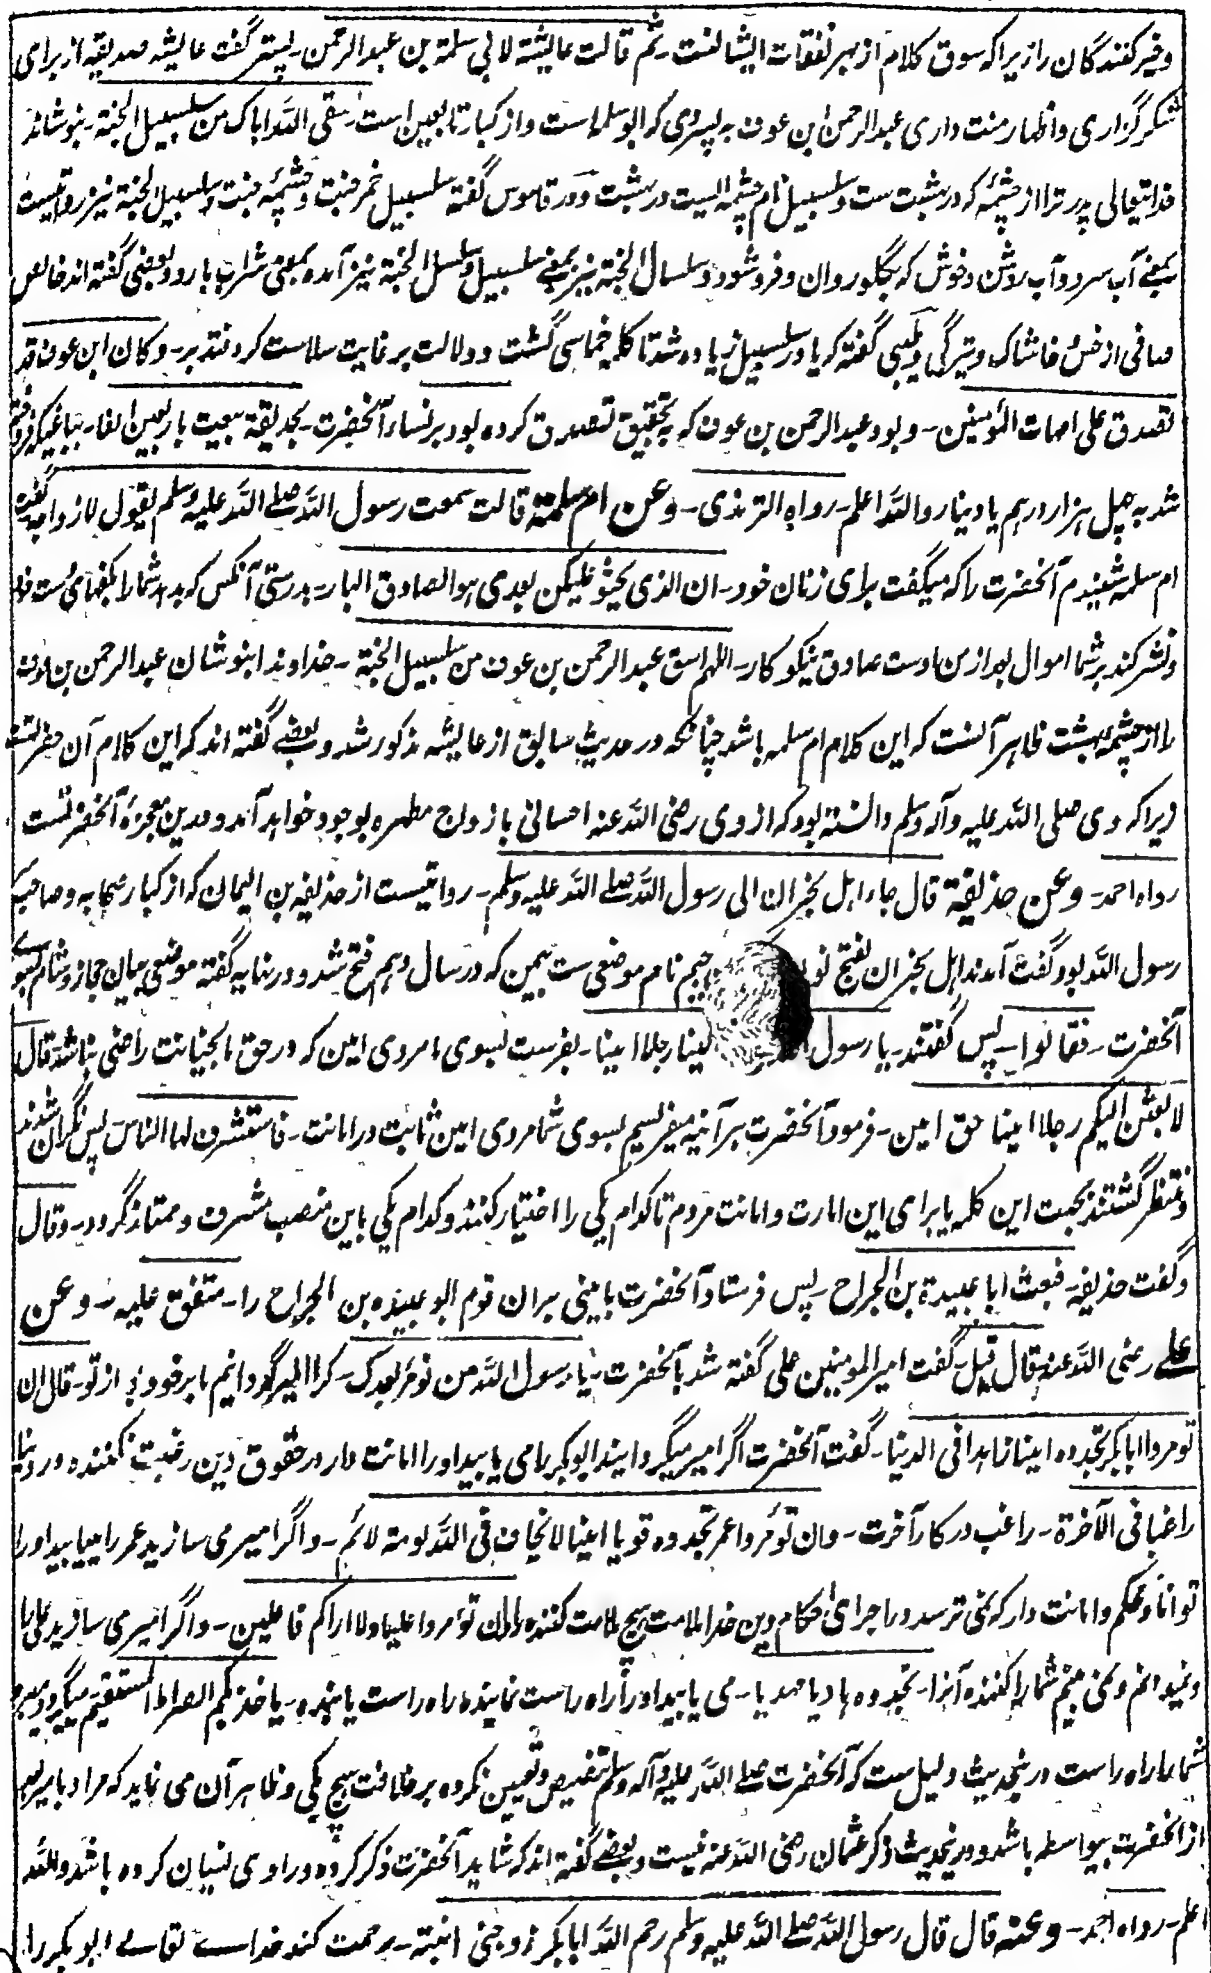 وخیر کنندگان را زیرا که سوق کلام از بهر نفقات ایشانست ـ ثم قالت عایشة لابی سلمة بن عبدالرحمن ـ پستر گفت عایشه صدیقه از برای
شکر گزاری و اظهار منت داری عبدالرحمن ابن عوف به پسر وی که ابو سلمه است و از کبار تابعین است ـ سقی الله اباک من سلسبیل الجنة ـ بنوشاند
خدایتعالی پدر ترا از چشمهٔ که در بهشت ست و سلسبیل نام چشمه ایست در بهشت و در قاموس گفته سلسبیل خمر جنت و چشمهٔ جنت و سلسبیل الجنة نیز روایتست
بمعنی آب سرد و آب روشن و خوش که بگلو روان و فرو شود و سلسال الجنة نیز بمعنے سلسبیل و سلسل الجنة نیز آمده بمعنی شراب بارد و بعضی گفته اند خالص
صافی از خس و خاشاک و تیرگی و طیبی گفته که یا در سلسبیل زیاده شد تا کلمه خماسی گشت و دلالت بر غایت سلاست کرد فتدبر ـ و کان ابن عوف قد
تصدق علی امهات المؤمنین ـ و بود عبدالرحمن بن عوف که به تحقیق تصدق کرده بود بر نساء آنحضرت ـ بحدیقة بیعت باربعین الفا ـ بباغیکه فروخته
شد به چهل هزار درهم یا دینار والله اعلم ـ رواه الترمذی ـ وعن ام سلمة قالت سمعت رسول الله صلے الله علیه وسلم یقول لازواجه گفت
ام سلمه شنیدم آنحضرت را که میگفت برای زنان خود ـ ان الذی یحثو علیکن بعدی هو الصادق البار ـ بدرستی آنکس که بدهد شما را بکفهای دست خود
و نشر کند بر شما اموال بعد از من اوست صادق نیکو کار ـ اللهم اسق عبدالرحمن بن عوف من سلسبیل الجنة ـ خداوندا بنوشان عبدالرحمن بن عوف
را از چشمه بهشت ظاهر آنست که این کلام ام سلمه باشد چنانکه در حدیث سابق از عایشه مذکور شد و بعضے گفته اند که این کلام آن حضرتست
زیرا که وی صلی الله علیه وآله وسلم دانسته بود که از وی رضی الله عنه احسانی بازواج مطهره بوجود خواهد آمد و درین معجزهٔ آنحضرتست
رواه احمد ـ وعن حذیفة قال جاء اهل نجران الی رسول الله صلے الله علیه وسلم ـ روایتست از حذیفه بن الیمان که از کبار صحابه و صاحب سر
رسول الله بود گفت آمدند اهل نجران بفتح نون جیم نام موضعی ست بیمن که در سال دهم فتح شد و در نهایه گفته موضعی میان حجاز و شام بسوے
آنحضرت ـ فقالوا ـ پس گفتند ـ یا رسول الینا رجلا امینا ـ بفرست بسوی ما مردی امین که در حق ما بخیانت راضی نباشد قال
لابعثن الیکم رجلا امینا حق امین ـ فرمود آنحضرت هر آئینه میفرستم بسوی شما مردی امین ثابت در امانت ـ فاستشرف لها الناس پس نگران شدند
و منتظر گشتند بجهت این کلمه یا برای این امارت و امانت مردم تا کدام یکی را اختیار کنند و کدام یکی باین منصب مشرف و ممتاز گردد ـ و قال
و گفت حذیفه ـ فبعث ابا عبیدة بن الجراح ـ پس فرستاد آنحضرت بامینی بران قوم ابو عبیده بن الجراح را ـ متفق علیه ـ وعن
علے رضی الله عنه قال قیل ـ گفت امیر المومنین علی گفته شد بآنحضرت ـ یا رسول الله من نؤمر بعدک ـ کرا امیر گردانیم ما بر خود بعد از تو ـ قال ان
تؤمروا ابابکر تجدوه امینا زاهدا فی الدنیا ـ گفت آنحضرت اگر امیر میگردانید ابوبکر را می یابید او را امانت دار در حقوق دین رغبت نکننده در دنیا
راغبا فی الآخرة ـ راغب در کار آخرت ـ وان تؤمروا عمر تجدوه قویا امینا لا یخاف فی الله لومة لائم ـ و اگر امیر می سازید عمر را مییابید او را
توانا و محکم و امانت دار که نمی ترسد در اجرای احکام دین خدا ملامت هیچ ملامت کننده را وان تؤمروا علیا ولا اراکم فاعلین ـ و اگر امیر می سازید علی را
و نمیدانم و نمی بینم شما را کننده آنرا ـ تجدوه هادیا مهدیا ـ می یابید او را راه راست نماینده راه راست یابنده ـ یاخذ بکم الصراط المستقیم میگیرد و میبرد
شما را راه راست درینحدیث دلیل ست که آنحضرت صلے الله علیه وآله وسلم تنصیص و تعیین نکرده بر خلافت هیچ یکی و ظاهر آن می نماید که مراد بامیر بعد
از آنحضرت بیواسطه باشد و درینحدیث ذکر عثمان رضی الله عنه نیست و بعضے گفته اند که شاید آنحضرت ذکر کرده و راوی نسیان کرده باشد والله
اعلم ـ رواه احمد ـ وعنه قال قال رسول الله صلے الله علیه وسلم رحم الله ابابکر زوجنی ابنته ـ رحمت کند خداے تعالے ابوبکر را